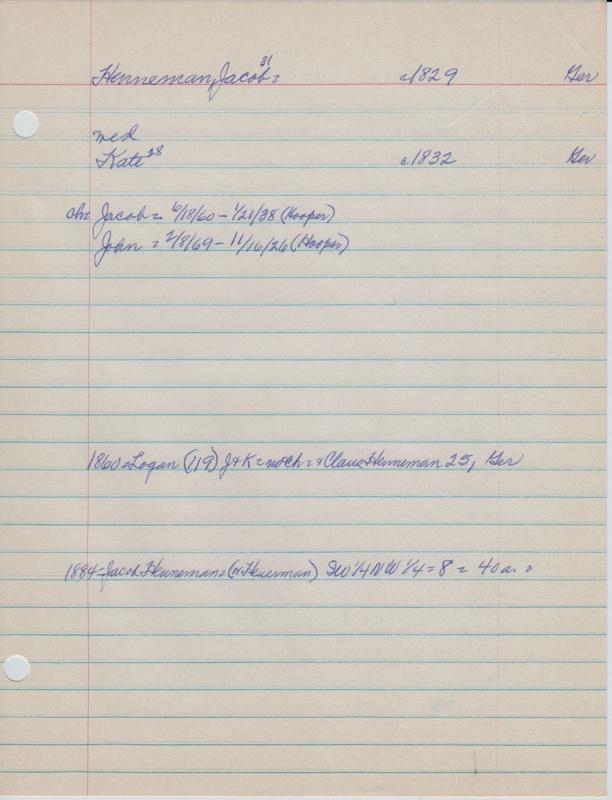 Henneman, Jacob 31 = c1829 Ger
med
Kate 28 c1832 Ger
ch= Jacob = 6/18/60 - 1/21/38 (Hooper)
John = 2/8/69 - 11/16/26 (Hooper)
1860 = Logan (119) J + K = no ch = + Claus Henneman 25, Ger
1884 = Jacob Henneman = (or Heuerman) SW 1/4 NW 1/4 = 8 = 40 a. =